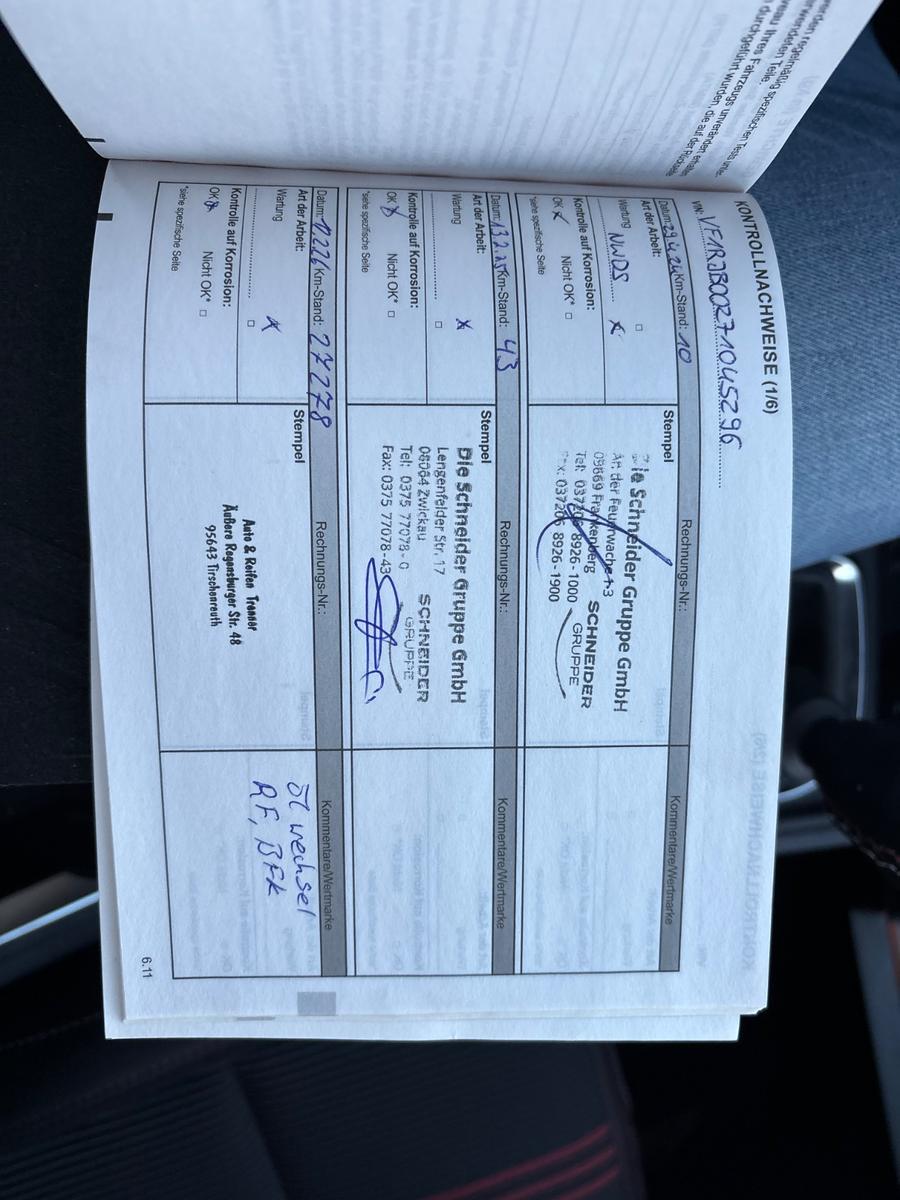 erden regelmäßig spezifischen Tests unter-
erwendeten Teile.
eau Ihres Fahrzeugs unverändert erhalten
durchgeführt wurden, die auf der Rückseite
KONTROLLNACHWEISE (1/6)
VIN: VF1RJB00271045296
Datum: 29.4.24 Km-Stand: 10 Rechnungs-Nr.: Kommentare/Wertmarke
Art der Arbeit:
Wartung
NWDS
Kontrolle auf Korrosion:
OK Nicht OK*
*siehe spezifische Seite
Stempel
Die Schneider Gruppe GmbH
An der Feuerwache 1+3
09669 Frankenberg
Tel: 037206 8926-1000
Fax: 037206 8926-1900
SCHNEIDER
GRUPPE
Datum: 13.2.25 Km-Stand: 43 Rechnungs-Nr.: Kommentare/Wertmarke
Art der Arbeit:
Wartung
Kontrolle auf Korrosion:
OK Nicht OK*
*siehe spezifische Seite
Stempel
Die Schneider Gruppe GmbH
Lengenfelder Str. 17
08064 Zwickau
Tel: 0375 77078-0
Fax: 0375 77078-43
SCHNEIDER
GRUPPE
Datum: 12.26 Km-Stand: 27278 Rechnungs-Nr.: Kommentare/Wertmarke
Art der Arbeit:
Wartung
Kontrolle auf Korrosion:
OK Nicht OK*
*siehe spezifische Seite
Stempel
Auto & Reifen Tronner
Äußere Regensburger Str. 48
95643 Tirschenreuth
Ölwechsel
RF, BFK
6.11